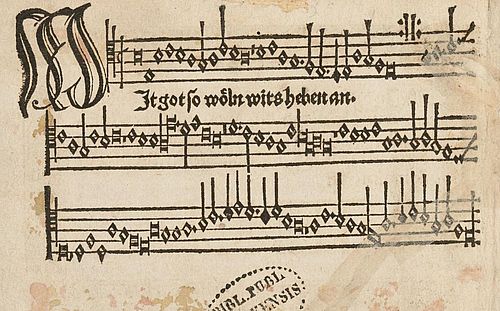 WIt got so wöln wirs heben an.
BIBL. PUBL
ENSIS.